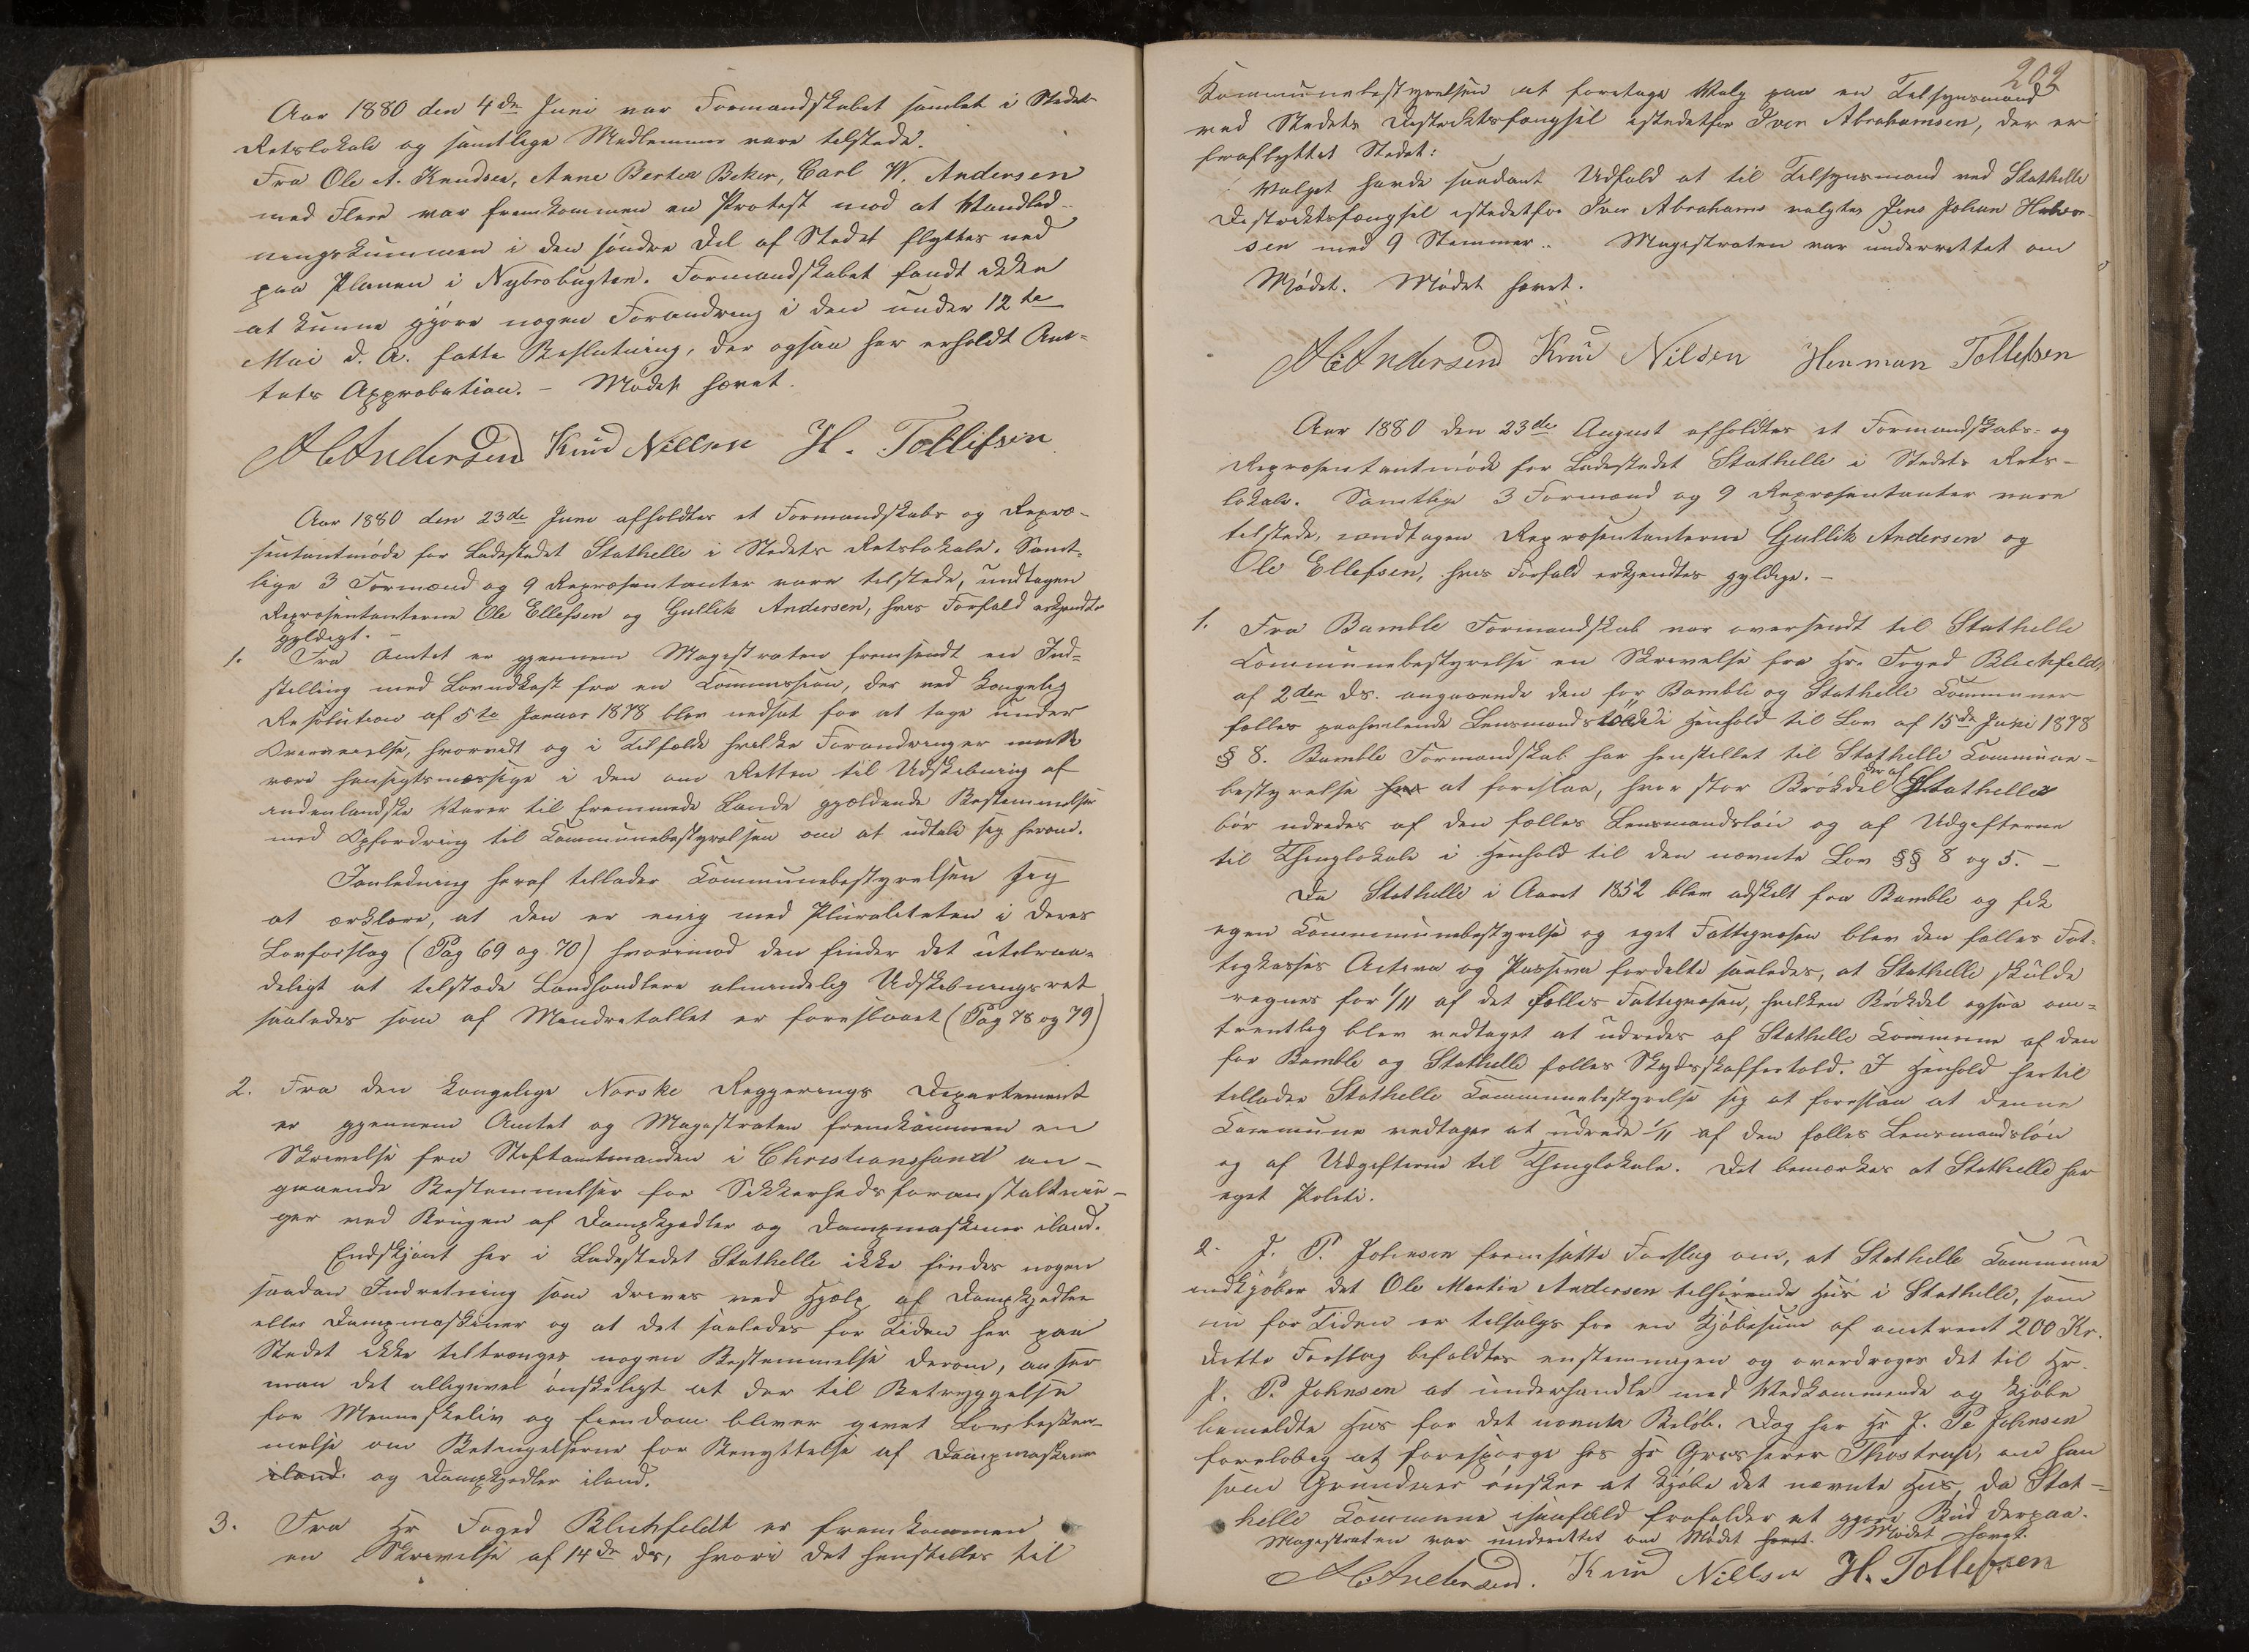 Aar 1880 den 4de Juni var Formandskabet samlet i Stedets
Retslokale og samtlige Medlemmer vare tilstede.
Fra Ole A. Knudsen, Anne Bertea Beker, Carl W. Andersen
med Flere var fremkommen en Protest mod at Vandled-
ningskummen i den söndre Del af Stedet flyttes ned
paa Planen i Nybrobugten. Formandskabet fandt ikke
at kunne gjöre nogen Forandring i den under 12te
Mai d. A. fatte Beslutning, der ogsaa har erholdt Amt-
tets Approbation. – Mödet hævet.
A C Andersen Knud Nillsen H. Tollefsen
Aar 1880 den 23de Juni afholdtes et Formandskabs og Repræ-
sentantmöde for Ladestedet Stathelle i Stedets Retslokale. Samt-
lige 3 Formænd og 9 Repræsentanter vare tilstede, undtagen
Repræsentanterne Ole Ellefsen og Gullik Andersen, hvis Forfald erkjendtes
gyldigt. –
1. Fra Amtet er gjennem Magistraten fremsendt en Ind-
stilling med Lovudkast fra en Commission, der ved Kongelig
Resolution af 5te Januar 1878 blev nedsat for at tage under
Overveielse, hvorvidt og i Tilfælde hvilke Forandringer maatte
være hensigtsmæssige i den om Retten til Udskibning af
indenlandske Varer til fremmede Lande gjældende Bestemmelser
med Opfordring til Communebestyrelsen om at udtale sig herom.
I Anledning heraf tillader Communebestyrelsen sig
at erklære, at den er enig med Pluraliteten i deres
Lovforslag (Pag 69 og 70) hvorimod den finder det utilraa-
deligt at tilstæde Landhandlere almindelig Udskibningsret
saaledes som af Mindretallet er foreslaaet (Pag 78 og 79)
2. Fra den Kongelige Norske Regjerings Departement
er gjennem Amtet og Magistraten fremkommen en
Skrivelse fra Stiftamtmanden i Christianssand an-
gaaende Bestemmelser for Sikkerhedsforanstaltnin-
ger ved Brugen af Dampkjedler og Dampmaskiner iland.
Endskjönt her i Ladestedet Stathelle ikke findes nogen
saadan Indretning som drives ved Hjælp af Dampkjedler
eller Dampmaskiner og at det saaledes for Tiden her paa
Stedet ikke tiltrænges nogen Bestemmelse derom, anser
man det alligevel önskeligt at der til Betryggelse
for Menneskeliv og Eiendom bliver givet Lovbestem-
melse om Betingelserne for Benyttelse af Dampmaskiner
iland. og Dampkjedler iland.
3. Fra Hr Foged Blichfeldt er fremkommen
en Skrivelse af 14de ds, hvori det henstilles til
202
Kommunebestyrelsen at foretage Valg paa en Tilsynsmand
ved Stedets Distriktsfængsel istedetfor Iver Abrahamsen, der er
fraflyttet Stedet:
Valget havde saadant Udfald at til Tilsynsmand ved Stathelle
Distriktsfængsel istedetfor Iver Abrahams valgtes Jens Johan Halvor-
sen med 9 Stemmer.. Magistraten var underrettet om
Mödet. Mödet hævet.
A C Andersen Knud Nilsen Herman Tollefsen
Aar 1880 den 23de August afholdtes et Formandskabs- og
Repræsentantmöde for Ladestedet Stathelle i Stedets Rets-
lokale. Samtlige 3 Formænd og 9 Repræsentanter vare
tilstede, undtagen Repræsentanterne Gullik Andersen og
Ole Ellefsen, hvis Forfald erkjendtes gyldige. –
1. Fra Bamble Formandskab var oversendt til Stathelle
Communebestyrelse en Skrivelse fra Hr. Foged Blichfeldt
af 2den ds. angaaende den for Bamble og Stathelle Communer
fælles paahvilende Lensmands i Henhold til Lov af 15de Juni 1878
§ 8. Bamble Formandskab har henstillet til Stathelle Commune-
bestyrelse hvor at foreslaa, hvor stor Brökdel der af Stathelle
bör udredes af den fælles Lensmandslön og af Udgifterne
til Thinglokale i Henhold til den nævnte Lov §§ 8 og 5. –
Da Stathelle i Aaret 1852 blev adskilt fra Bamble og fik
egen Communebestyrelse og eget Fattigvæsen blev den fælles Fat-
tigkasses Activa og Passiva fordelte saaledes, at Stathelle skulde
regnes for 1/11 af det fælles Fattigvæsen, hvilken Brökdel ogsaa om-
trentlig blev vedtaget at udredes af Stathelle Commune af den
for Bamble og Stathelle fælles Skydsskaffertold. I Henhold hertil
tillader Stathelle Communebestyrelse sig at foreslaa at denne
Commune vedtager at udrede 1/11 af den fælles Lensmandslön
og af Udgifterne til Thinglokale. Det bemærkes at Stathelle har
eget Politi.
2. J. P. Johnsen fremsatte Forslag om, at Stathelle Commune
indkjöber det Ole Martin Andersen tilhörende Hus i Stathelle, som
nu for Tiden er tilsalgs for en Kjöbesum af omtrent 200 Kr.
Dette Forslag bifaldtes enstemmigen og overdroges det til Hr.
J. P. Johnsen at underhandle med Vedkommende og kjöbe
bemeldte Hus for det nævnte Belöb. Dog har Hr J. P. Johnsen
forelöbig at forespörge hos Hr Grosserer Thostrup, om han
som Grundeier önsker at kjöbe det nævnte Hus, da Stat-
helle Commune isaafald frafalder at gjöre Bud derpaa.
Magistraten var underrettet om Mödet hævet. Mödet hævet.
A C Andersen. Knud Nillsen H. Tollefsen